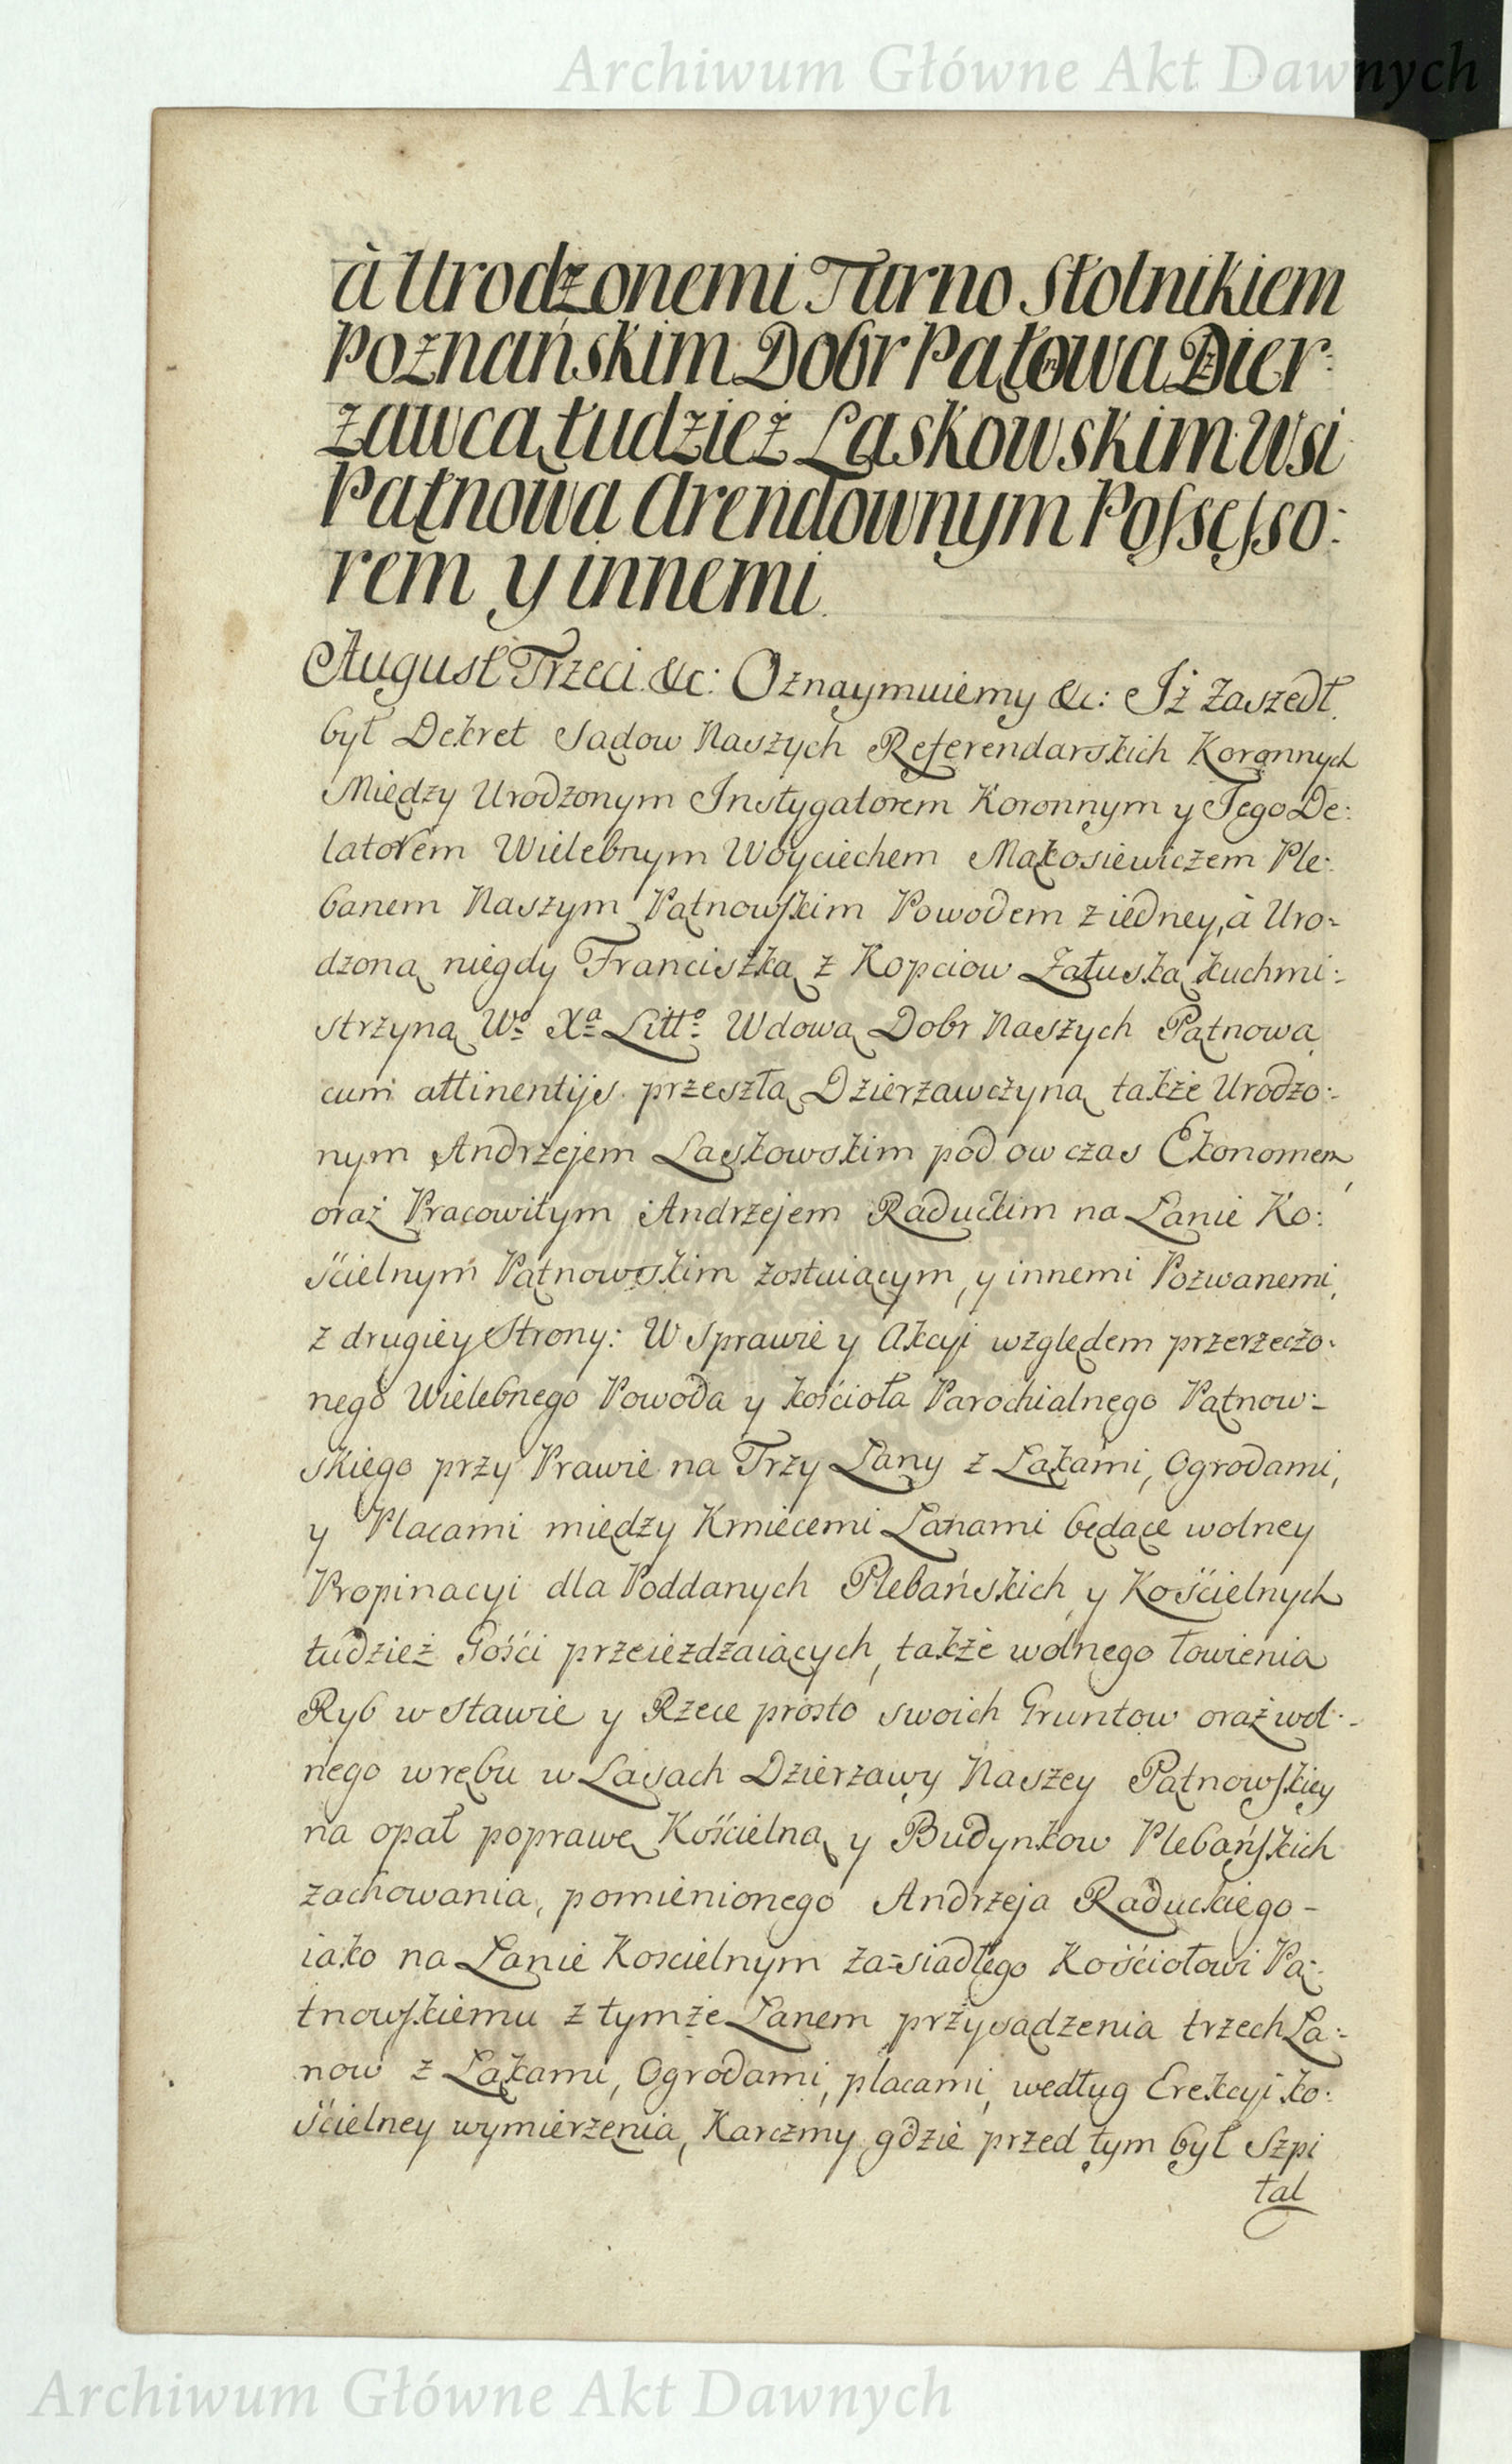 Archiwum Główne Akt Dawnych
à Urodzonemi Turno Stolnikiem
Poznańskim Dobr Pątnowa Dzier:
żawcą tudzież Laskowskim Wsi
Pątnowa Arendownym Possesso:
rem y innemi.
August Trzeci &c: Oznaymuiemy &c: Iż Zaszedł
był Dekret Sądow Naszych Referendarskich Koronnych
Między Urodzonym Instygatorem Koronnym y Jego De:
latorem Wielebnym Woyciechem Małosiewiczem Ple:
banem Naszym Pątnowskim Powodem z iedney, à Uro:
dzoną niegdy Franciszką z Kopciow Załuską kuchmi:
strzyną Wº Xª Littº Wdową Dobr Naszych Pątnowa
cum attinentijs przeszłą Dzierżawczyną także Urodzo:
nym Andrzejem Laskowskim pod ow czas Ekonomem,
oraz Pracowitym Andrzejem Raduckim na Lanie Ko:
ścielnym Pątnowskim zostaiącym, y innemi Pozwanemi,
z drugiey Strony: W Sprawie y Akcyi względem przerzeczo:
nego Wielebnego Powoda y kościoła Parochialnego Pątnow:
skiego przy Prawie na Trzy Lany z Łąkami, Ogrodami,
y Placami między Kmiecemi Lanami będące wolney
Propinacyi dla Poddanych Plebańskich y Kościelnych
tudzież Gości przeieżdżaiących, także wolnego łowienia
Ryb w Stawie y Rzece prosto swoich Gruntow oraz wol:
nego wrębu w Lasach Dzierżawy Naszey Pątnowskiey
na opał poprawę Kościelną y Budynkow Plebańskich
zachowania, pomienionego Andrzeja Raduckiego-
iako na Lanie Koscielnym za=siadłego Kościołowi Pą:
tnowskiemu z tymże Lanem przysądzenia trzech La:
now z Łąkami, Ogrodami, placami, według Erekcyi ko:
ścielney wymierzenia, Karczmy gdzie przed tym był Szpi
tal
Archiwum Główne Akt Dawnych